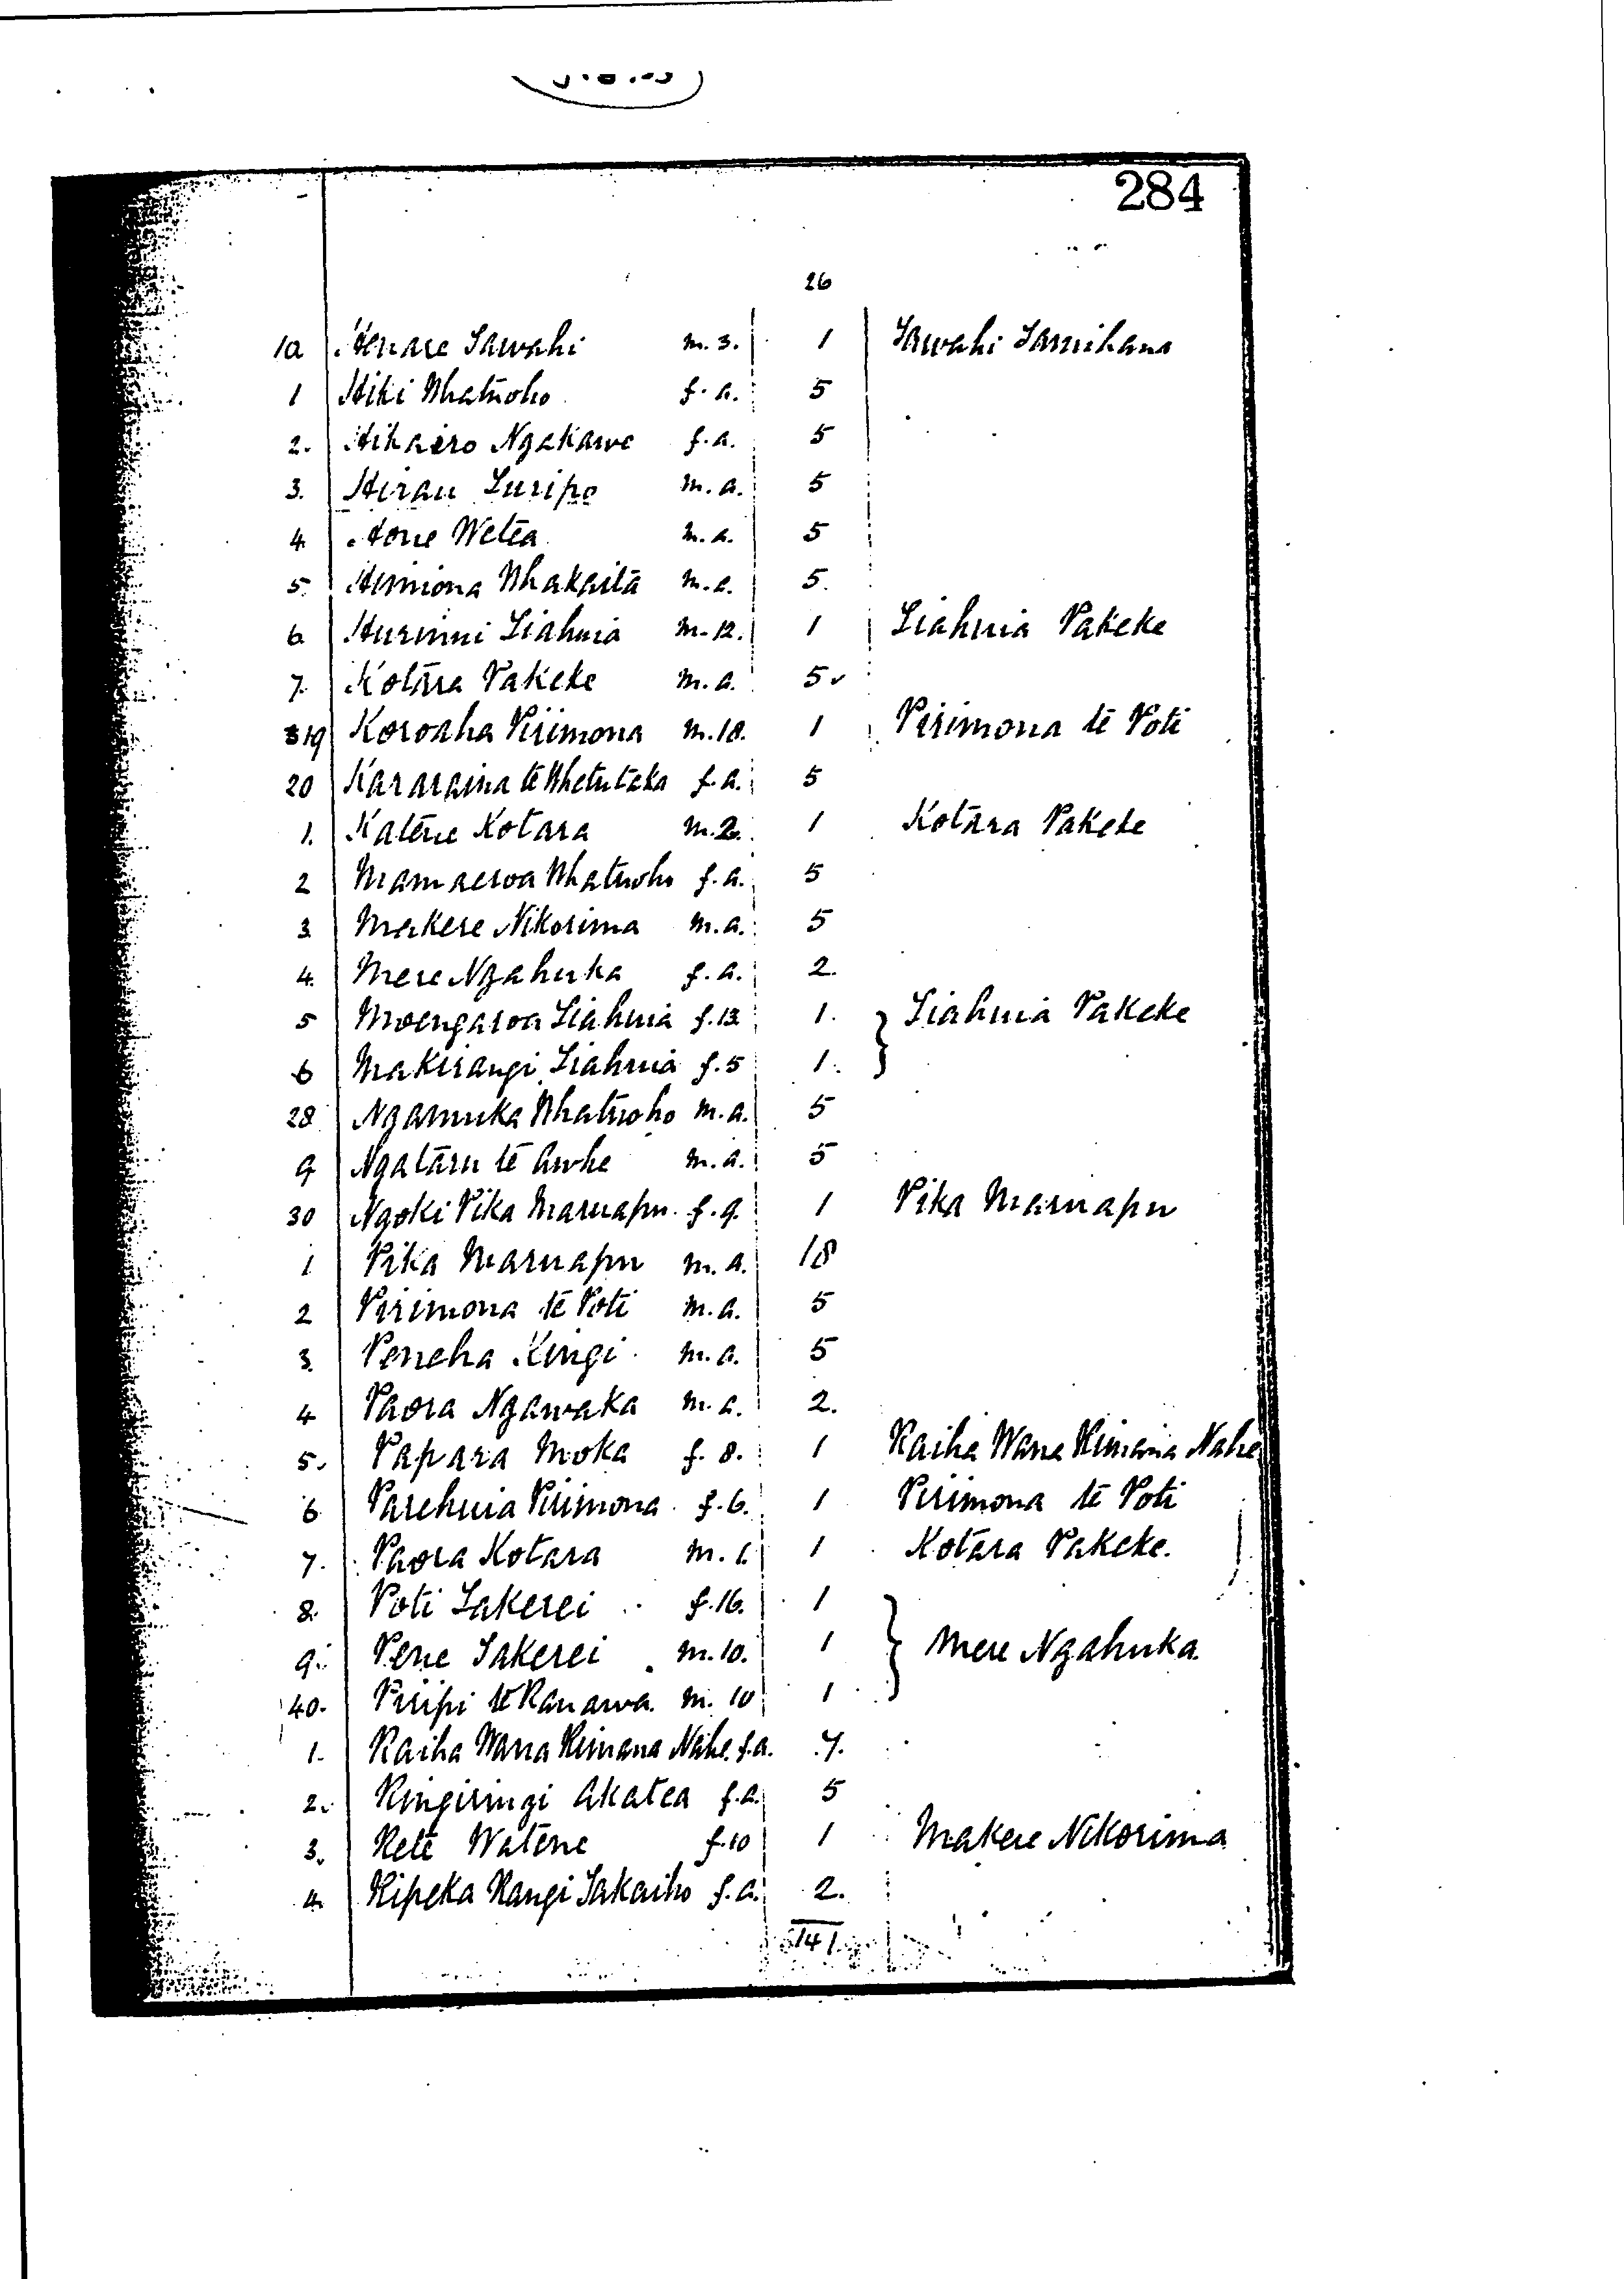 284
26
10 Henare Tawahi m. 3. 1 Tawahi Tamihana
1 Hiki Whatuoho f. a. 5
2. Hikairo Ngakawe f. a. 5
3. Hirau Turipo m. a. 5
4. Hone Wetea m. a. 5
5. Himiona Whakaita m. a. 5.
6. Huruni Tiahuia m. 12. 1 Tiahuia Pakeke
7. Kotara Pakeke m. a. 5
19 Koroaha Pirimona m. 10. 1 Pirimona te Poti
20 Kararaina te Whetuteka f. a. 5
1. Katene Kotara m. 2. 1 Kotara Pakeke
2 Mamaeroa Whatuoho f. a. 5
3 Makere Nikorima m. a. 5
4. Mere Ngahuka f. a. 2.
5 Moengaroa Tiahuia f. 13 1. } Tiahuia Pakeke
6 Makirangi Tiahuia f. 5 1.
28 Ngamuka Whatuoho m. a. 5
9 Ngataru te Awhe m. a. 5
30 Ngoki Pika Maruapu f. 9. 1 Pika Maruapu
1 Pika Maruapu m. a. 18
2 Pirimona te Poti m. a. 5
3. Peneha Kingi m. a. 5
4 Paora Ngawaka m. a. 2.
5. Papara Moka f. 8. 1 Raiha Wana Rimana Nahe
6 Parehuia Pirimona f. 6. 1 Pirimona te Poti
7. Paora Kotara m. 1 Kotara Pakeke.
8. Poti Takerei f. 16. 1
9. Pene Takerei m. 10. 1 } Mere Ngahuka.
40. Piripi te Ranawa m. 10 1
1. Raiha Wana Rimana Nahe f. a. 7.
2. Ringiringi Akatea f. a. 5
3. Rete Watene f. 10 1 Makere Nikorima
4. Ripeka Rangi Takaiho f. a. 2.
141